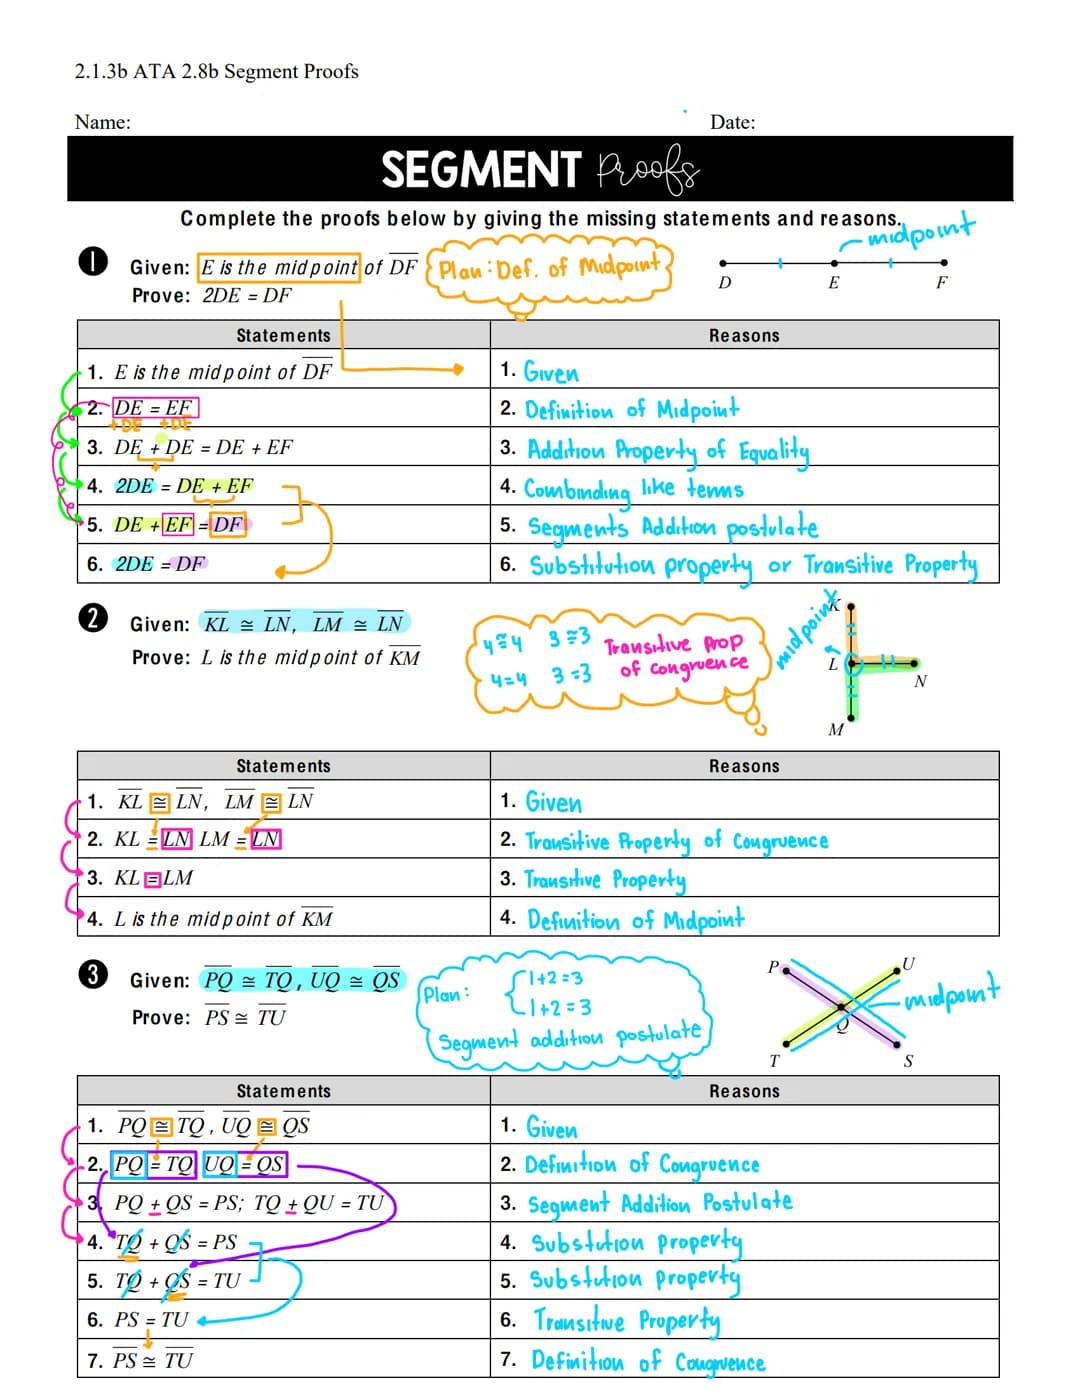 2.1.3b ATA 2.8b Segment Proofs
Name: Date:
SEGMENT Proofs
Complete the proofs below by giving the missing statements and reasons.
midpoint
1 Given: E is the midpoint of DF
Prove: 2DE = DF
Plan: Def. of Midpoint
D E F
Statements Reasons
1. E is the midpoint of DF 1. Given
2. DE = EF 2. Definition of Midpoint
+DE +DE
3. DE + DE = DE + EF 3. Addition Property of Equality
4. 2DE = DE + EF 4. Combinding like terms
5. DE + EF = DF 5. Segments Addition postulate
6. 2DE = DF 6. Substitution property or Transitive Property
2 Given: KL ≅ LN, LM ≅ LN
Prove: L is the midpoint of KM
4≅4 3≅3 Transitive Prop
4=4 3=3 of congruence
midpoint
K
L
N
M
Statements Reasons
1. KL ≅ LN, LM ≅ LN 1. Given
2. KL = LN LM = LN 2. Transitive Property of Congruence
3. KL = LM 3. Transitive Property
4. L is the midpoint of KM 4. Definition of Midpoint
3 Given: PQ ≅ TQ, UQ ≅ QS
Prove: PS ≅ TU
Plan: 1+2=3
1+2=3
Segment addition postulate
P U
midpoint
Q
T S
Statements Reasons
1. PQ ≅ TQ, UQ ≅ QS 1. Given
2. PQ = TQ UQ = QS 2. Definition of Congruence
3. PQ + QS = PS; TQ + QU = TU 3. Segment Addition Postulate
4. TQ + QS = PS 4. Substution property
5. TQ + QS = TU 5. Substution property
6. PS = TU 6. Transitive Property
7. PS ≅ TU 7. Definition of Congruence